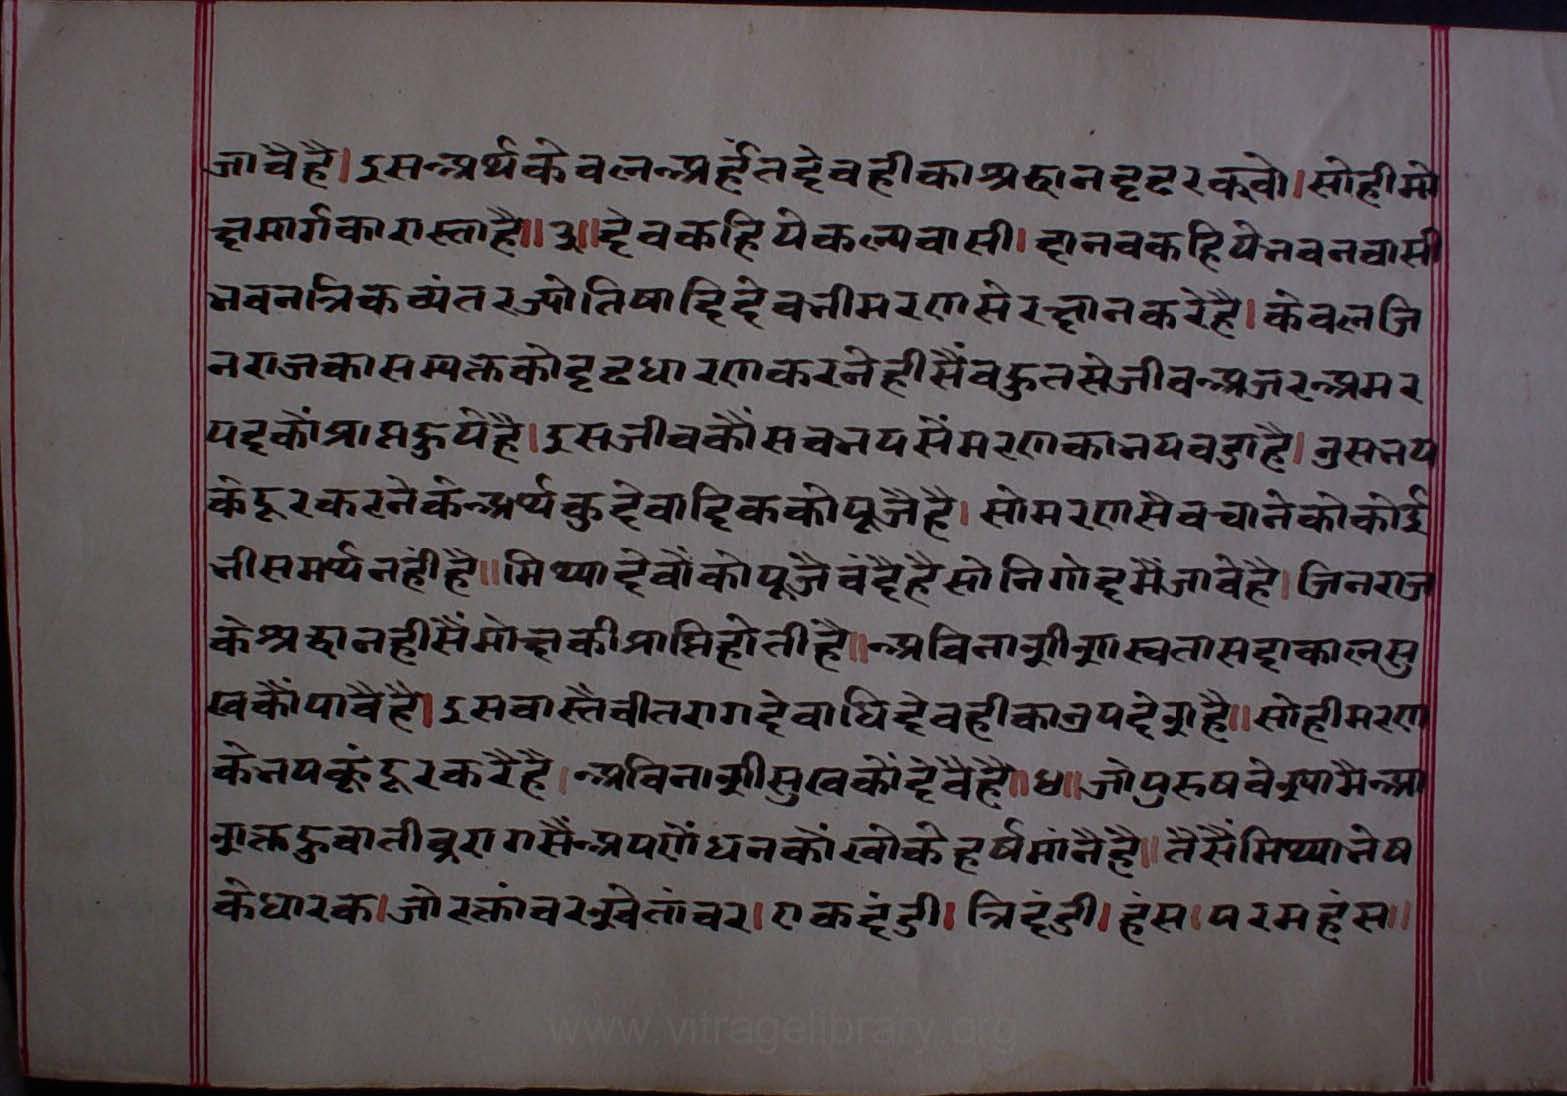 जावैहै।इसअर्थकेवलअर्हंतदेवहीकाश्रद्धानदृढरक्खो।सोहीमो
क्षमार्गकारास्ताहै॥३॥देवकहियेकल्पवासी।दानवकहियेभवनवासी
भवनत्रिकव्यंतरज्योतिषादिदेवभीमरणसेरक्षानकरेहै।केवलजि
नराजकासम्यक्तकोदृढधारणकरनेहीसैंबहुतसेजीवअजरअमर
पदकौंप्राप्तहुयेहै।इसजीवकौंसबभयसैंमरणकाभयबडाहै।उसभय
केदूरकरनेकेअर्थकुदेवादिककोपूजैहै।सोमरणसैबचानेकोकोई
भीसमर्थनहींहै॥मिथ्यादेवोंकोपूजैवंदैहैसोनिगोदमैंजावेहै।जिनराज
केश्रद्धानहीसैंमोक्षकीप्राप्तिहोतीहै॥अविनाशीशास्वतासदाकालसु
खकौंपावैहै।इसवास्तैवीतरागदेवाधिदेवहीकाउपदेशहै॥सोहीमरण
केभयकूंदूरकरैहै।अविनाशीसुखकोंदेवैहै॥४॥जोपुरुषवेश्यामैआ
शक्तहुवातीव्ररागसैंअपणेंधनकोंखोकेहर्षमांनैहै॥तैसैंमिथ्याभेष
केधारक।जोरक्तांबरश्वेतांबर।एकदंडी।त्रिदंडी।हंस।परमहंस॥
www.vitragelibrary.org